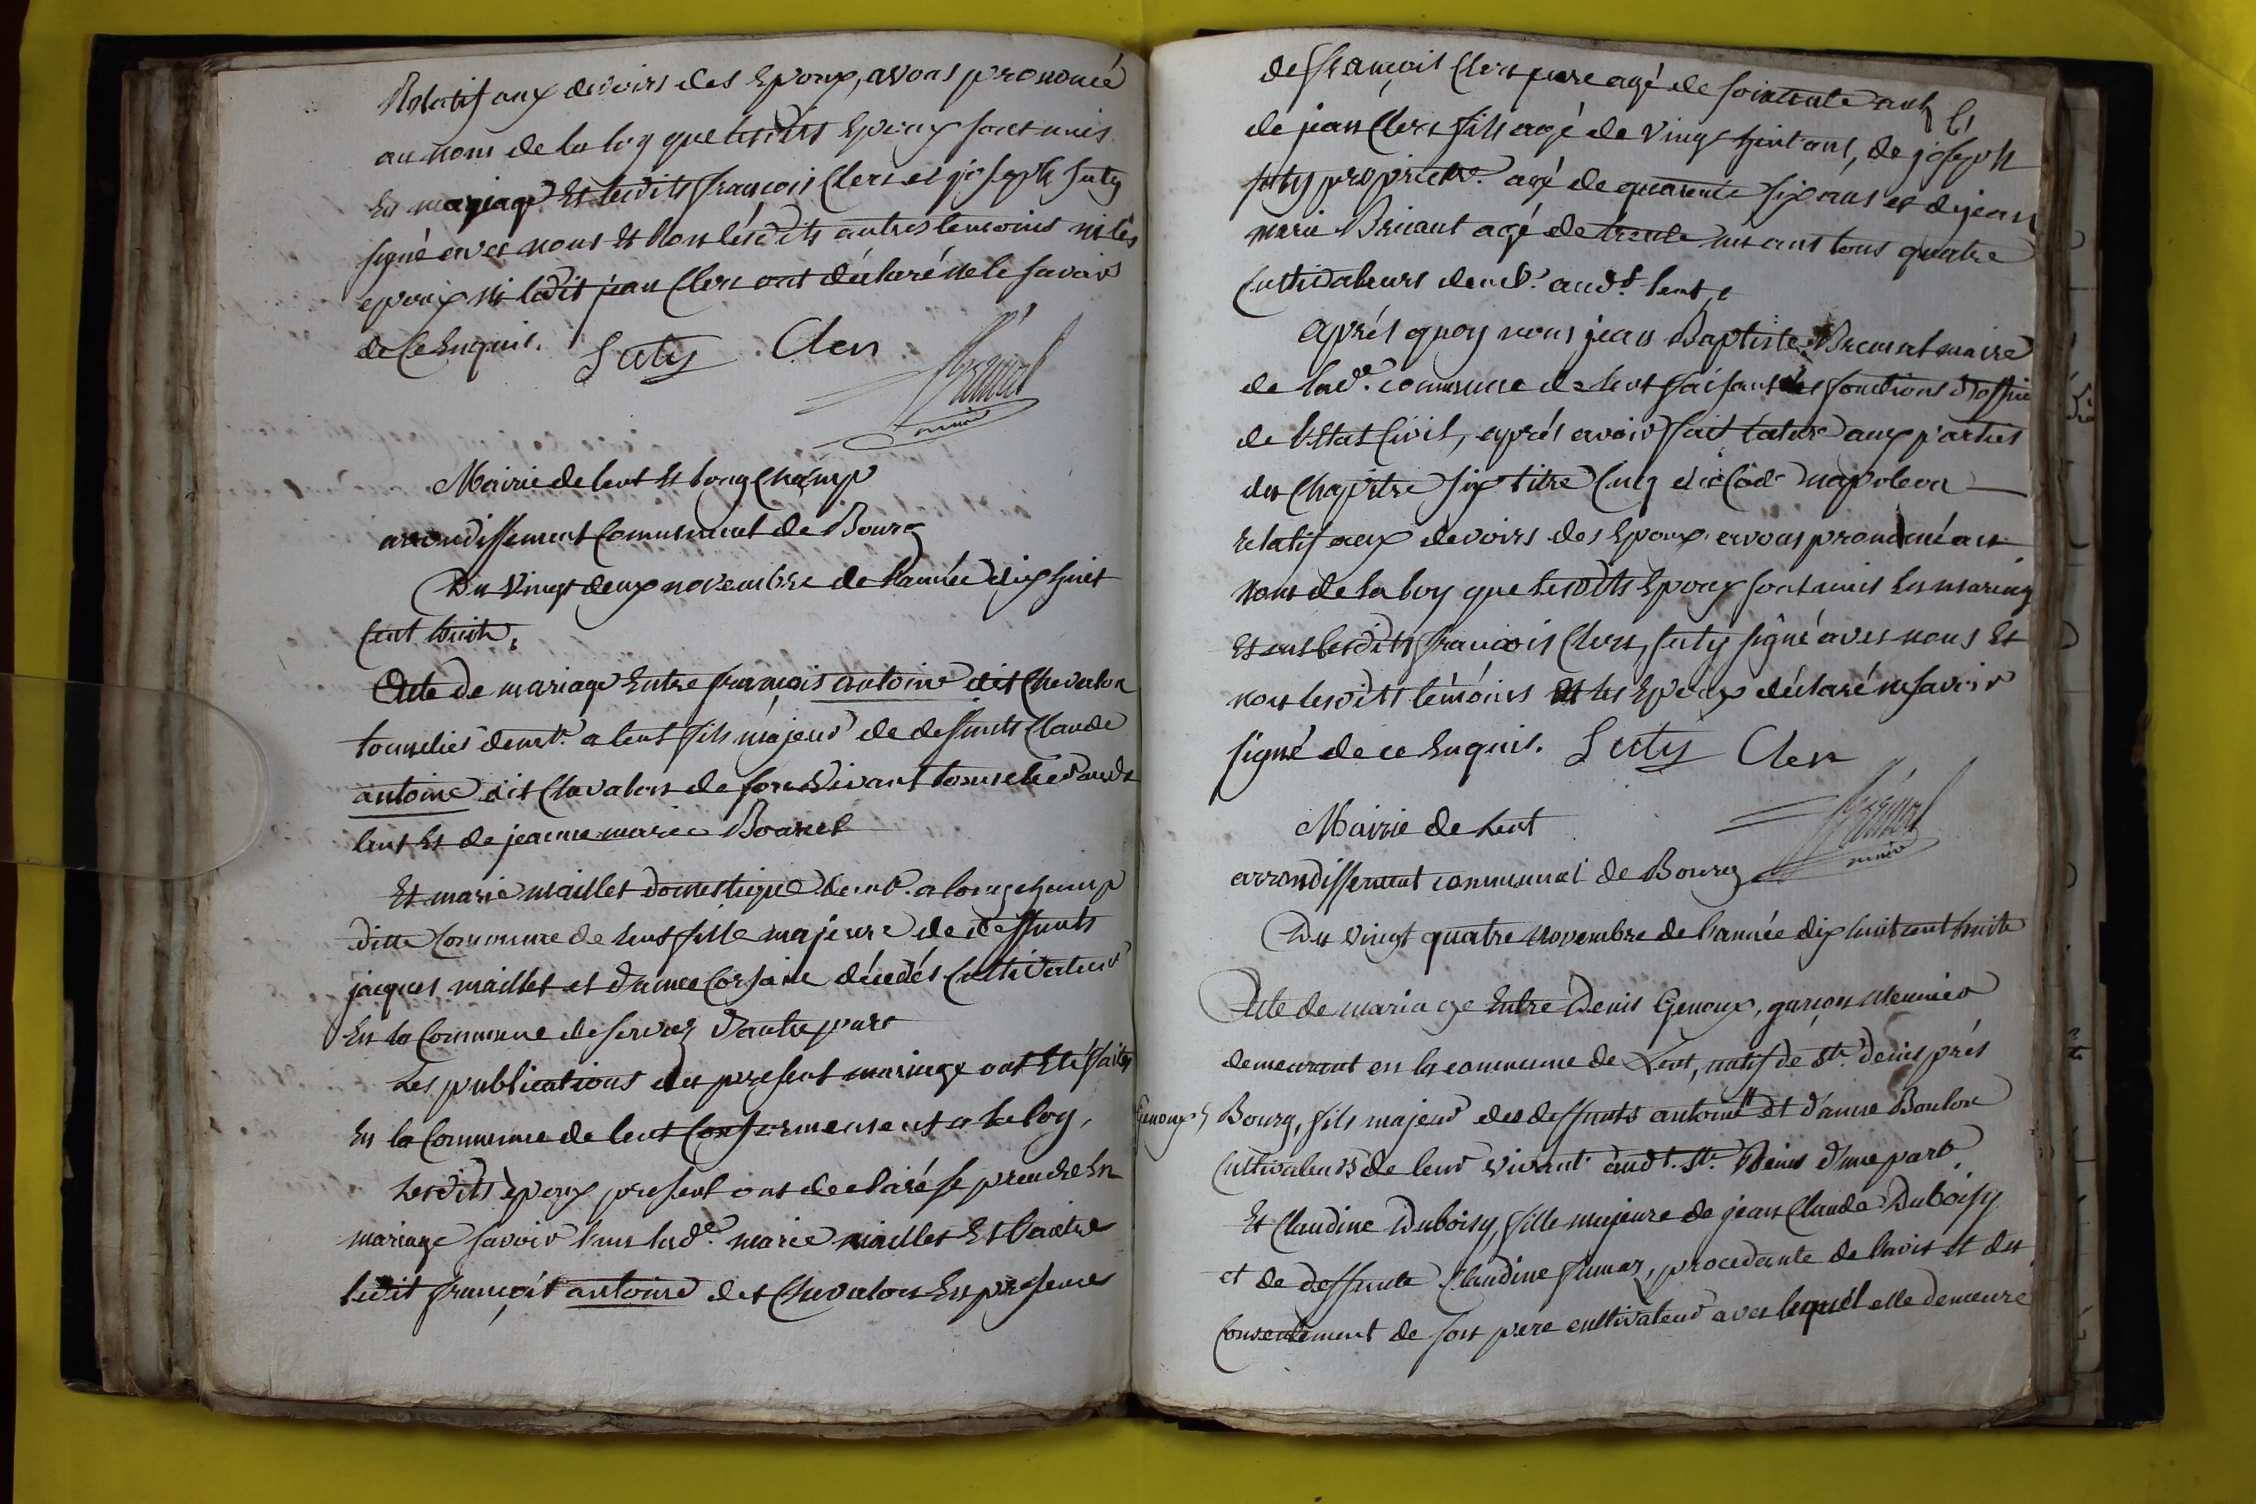 Relatif aux devoirs des Epoux, avons prononcé
au nom de la loy que lesdits Epoux sont unis
En mariage Et lesdits françois Clerc et joseph Suty
signé avec nous Et Non lesdits autres temoins ni les
epoux ni ledit jean Clerc ont déclaré ne le savoir
de Ce Enquis. Suty Clerc
maire
Mairie de lent Et longchamp
arrondissement Communal de Bourg
Du Vingt deux novembre de l'année dix huit
Cent huit,
Acte de mariage Entre françois antoine dit Chevalon
tonnelier demt. a lent fils majeur de deffunts Claude
antoine dit Chavalon de son Vivant tonnelier audt
lent Et de jeanne marie
Et marie maillet domestique demt. a longchamp
ditte Commune de lent fille majeure de deffunts
jacques maillet et d'anne décédés Cultivateurs
En la Commune de servas d'autre part
Les publications du present mariage ont Eté faites
En la Commune de lent Conformement a la loy,
Lesdits epoux present ont declaré se prendre En
mariage savoir l'un lade. marie maillet Et l'autre
ledit françois antoine dit Chevalon En presence
de françois Clerc pere agé de soixante ans Et
de jean Clerc fils agé de vingt huit ans, de joseph
Suty proprietre. agé de quarante six ans et de jean
marie agé de trente un ans tous quatre
Cultivateurs demt. audt. lent,
Après quoy nous jean Baptiste maire
de lade. commune de lent faisant les fonctions d'officier
de l'Etat Civil, après avoir fait lecture aux parties
du Chapitre six titre Cinq du Code napoleon
relatif aux devoirs des Epoux avons prononcé au
Nom de la loy que lesdits Epoux sont unis En mariage
Et ont lesdits françois Clerc, Suty signé avec nous Et
non lesdits témoins Et les Epoux déclaré ne savoir
signé de ce Enquis. Suty Clerc
maire
Mairie de Lent
arrondissement communal de Bourg
Du vingt quatre novembre de l'année dix huit cent huit
Acte de mariage Entre Denis Genoux, garçon Meunier
demeurant en la commune de Lent, natif de St. denis près
Genoux Bourg, fils majeur des deffunts antoine et d'anne Boulon
Cultivateurs de leur vivant audt. St. Denis d'une part
Et Claudine Duboisy, fille majeure de jean Claude Duboisy
et de deffunte Claudine, procedante de l'avis et du
Consentement de son pere cultivateur avec lequel elle demeure